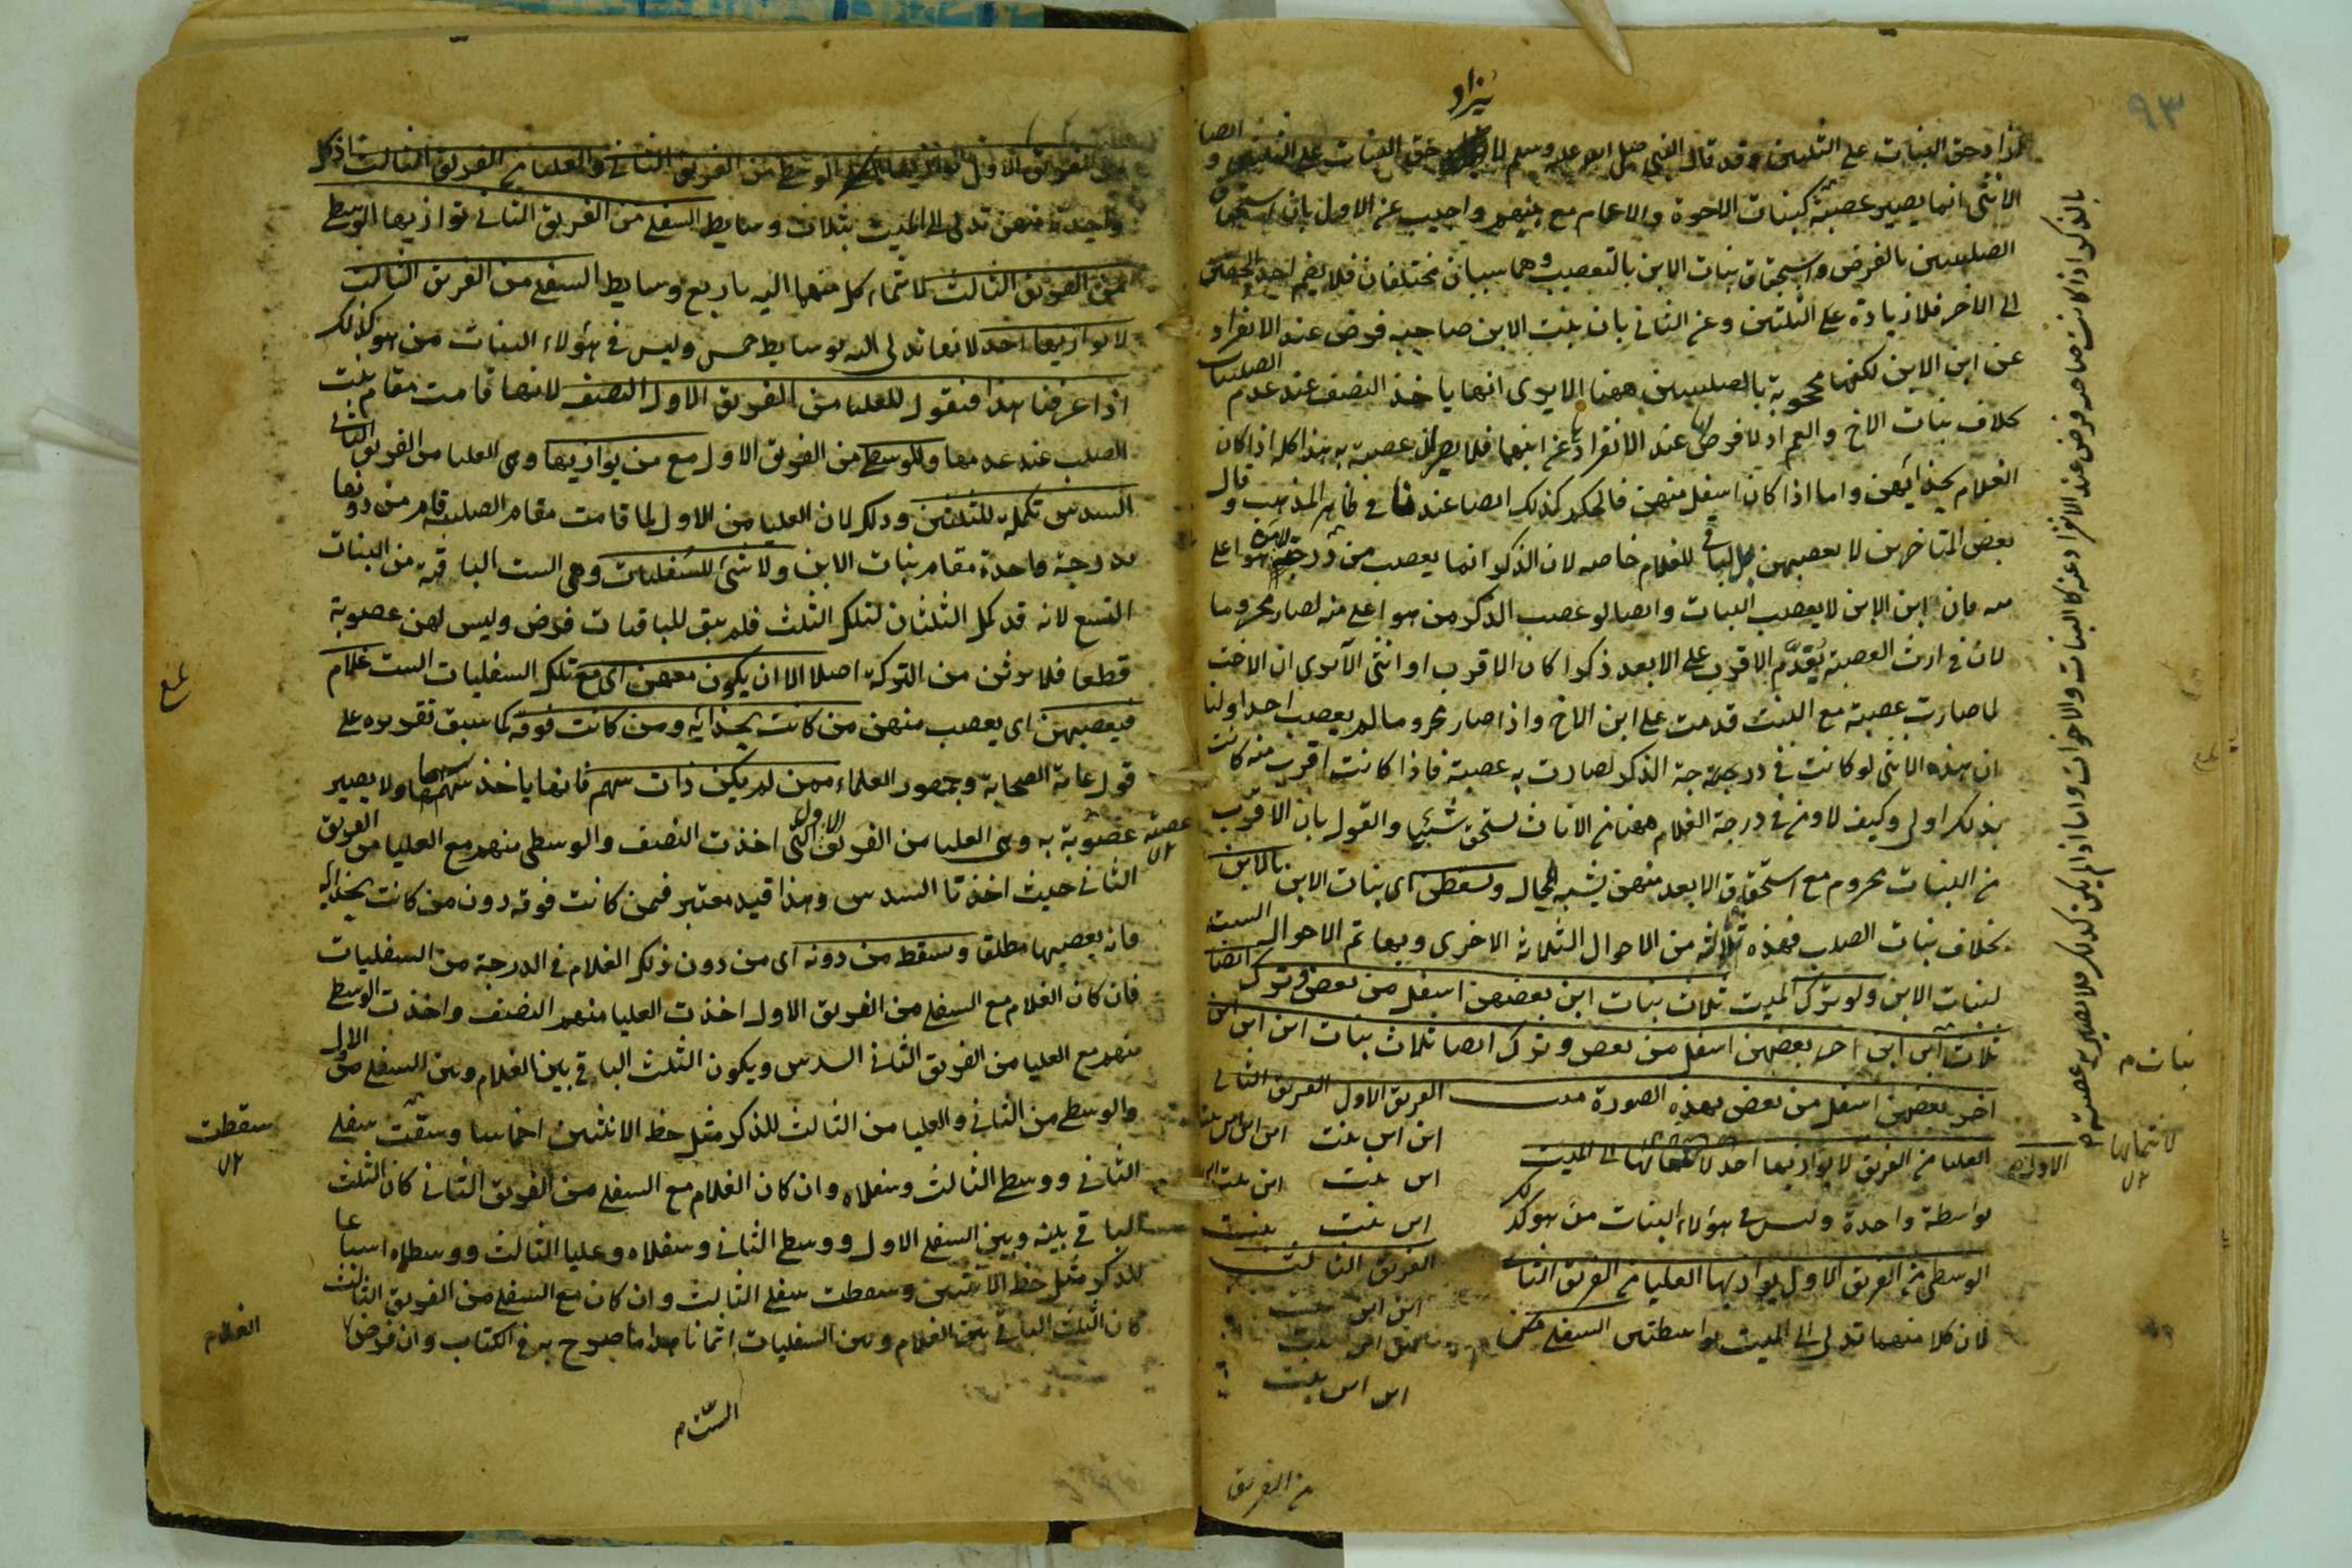 ٩٣
يزاد
لزاد حق البنات على الثلثين وقد قال النبي صلى الله عليه وسلم لا حق البنات على الثلثين و ايضا
الانثى انما يصير عصبة كبنات الاخوة والاعمام مع بنيهم واجيب عن الاول بان استحقاق
الصلبيتين بالفرض واستحقاق بنات الابن بالتعصيب وهما سببان مختلفان فلا يضم احد الحقين
الى الاخر فلا زيادة على الثلثين وعن الثاني بان بنت الابن صاحب فرض عند الانفراد
عن ابن الابن لكنها محجوبة بالصلبيتين ههنا الا يرى انها ياخذ النصف عند عدم الصلبيات
بخلاف بنات الاخ والعم اذ لا فرض لها عند الانفراد عن ابنهما فلا يصيران عصبة به هذا كله اذا كان
الغلام بحذائهن واما اذا كان اسفل منهن فالحكم كذلك ايضا عندنا في ظاهر المذهب وقال
بعض المتاخرين لا يعصبهن بل الباقي للغلام خاصة لان الذكر انما يعصب من في درجته لا من هو اعلى
منه فان ابن الابن لا يعصب البنات وايضا لو عصب الذكر من هو اعلى منه لصار محروما
لان في ارث العصبة يقدم الاقرب على الابعد ذكرا كان الاقرب او انثى الا يرى ان الاخت
لما صارت عصبة مع البنت قدمت على ابن الاخ واذا صار محروما لم يعصب احدا ولنا
ان هذه الانثى لو كانت في درجة الذكر لصارت به عصبة فاذا كانت اقرب منه كانت
بذلك اولى وكيف لا ومن في درجة الغلام ههنا من الاناث تستحق شيئا والقول بان الاقرب
من البنات محروم مع استحقاق الابعد منهن يشبه المحال ويسقطن اي بنات الابن بالابن
بخلاف بنات الصلب فهذه ثلاثة من الاحوال الثلاثة الاخرى وبها تم الاحوال الست
لبنات الابن ولو ترك الميت ثلاث بنات ابن بعضهن اسفل من بعض وترك ايضا
ثلاث ابن ابن آخر بعضهن اسفل من بعض وترك ايضا ثلاث بنات ابن ابن ابن
اخر بعضهن اسفل من بعض بهذه الصورة
الفريق الاول الفريق الثاني
ابن ابن بنت
ابن بنت
ابن بنت بنت
الفريق الثالث
ابن ابن بنت
ابن ابن بنت
العليا من الفريق الاول لا يوازيها احد لانتمائها الى الميت
بواسطة واحدة وليس في هؤلاء البنات من هو كذلك
الوسطى من الفريق الاول يوازيها العليا من الفريق الثاني
لان كلا منهما تدلى الى الميت بواسطتين السفلى من
بالذكر اذا كانت صاحبة فرض عند الانفراد عنه كالبنات والاخوات واما اذا لم يكن كذلك فلا تصير به عصبة
بنات م
لانتمائها
من الفريق
من الفريق الاول الوسطى من الفريق الثاني والعليا من الفريق الثالث اذ كل
واحدة منهن تدلى الى الميت بثلاث وسايط السفلى من الفريق الثاني توازيها الوسطى
من الفريق الثالث لانتماء كل منهما اليه باربع وسايط السفلى من الفريق الثالث
لا يوازيها احد لانها تدلى اليه بوسايط خمس وليس في هؤلاء البنات من هو كذلك
اذا عرفنا هذا فنقول للعليا من الفريق الاول النصف لانها قامت مقام بنت
الصلب عند عدمها وللوسطى من الفريق الاول مع من يوازيها وهي العليا من الفريق الثاني
السدس تكملة للثلثين وذلك لان العليا من الاول لما قامت مقام الصلبية قام من دونها
بدرجة واحدة مقام بنات الابن ولا شئ للسفليات وهي الست الباقية من البنات
التسع لانه قد كمل الثلثان لتلك الثلث فلم يبق للباقيات فرض وليس لهن عصوبة
قطعا فلا يرثن من التركة اصلا الا ان يكون معهن اي مع تلك السفليات الست غلام
فيعصبهن اي يعصب منهن من كانت بحذائه ومن كانت فوقه كما سبق تقريره على
قول عامة الصحابة وجمهور العلماء ممن لم يكن ذات سهم فانها ياخذ سهمها ولا يصير
عصبة به وهي العليا من الفريق الاول التي اخذت النصف والوسطى منهم مع العليا من الفريق
الثاني حيث اخذتا السدس وهذا قيد معتبر فيمن كانت فوقه دون من كانت بحذائه
فانه يعصبها مطلقا وسقط من دونه اي من دون ذلك الغلام في الدرجة من السفليات
فان كان الغلام مع السفلى من الفريق الاول اخذت العليا منهم النصف واخذت الوسطى
منهم مع العليا من الفريق الثاني السدس ويكون الثلث الباقي بين الغلام وبين السفلى من الاول
والوسطى من الثاني والعليا من الثالث للذكر مثل حظ الانثيين اخماسا وسقت سفلى
الثاني ووسطى الثالث وسفلاه وان كان الغلام مع السفلى من الفريق الثاني كان الثلث
الباقي بينه وبين السفلى الاول ووسطى الثاني وسفلاه وعليا الثالث ووسطاه اسباعا
للذكر مثل حظ الانثيين وسقطت سفلى الثالث وان كان مع السفلى من الفريق الثالث
كان الثلث الباقي بين الغلام وبين السفليات اثمانا هذا ما صرح به في الكتاب وان فرض
الست م
بلغ
عصبة
سقطت
الغلام